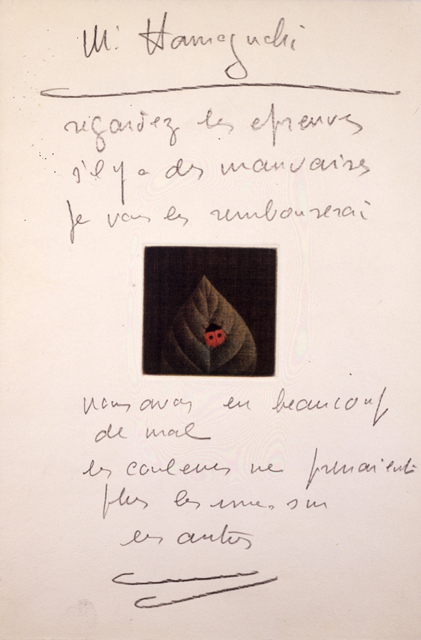 Mr Hamaguchi
regardez les epreuves
s'il y a des mauvaises
je vous les rembourserai
nous avons eu beaucoup
de mal
les couleurs ne prenaient
plus les unes sur
les autres